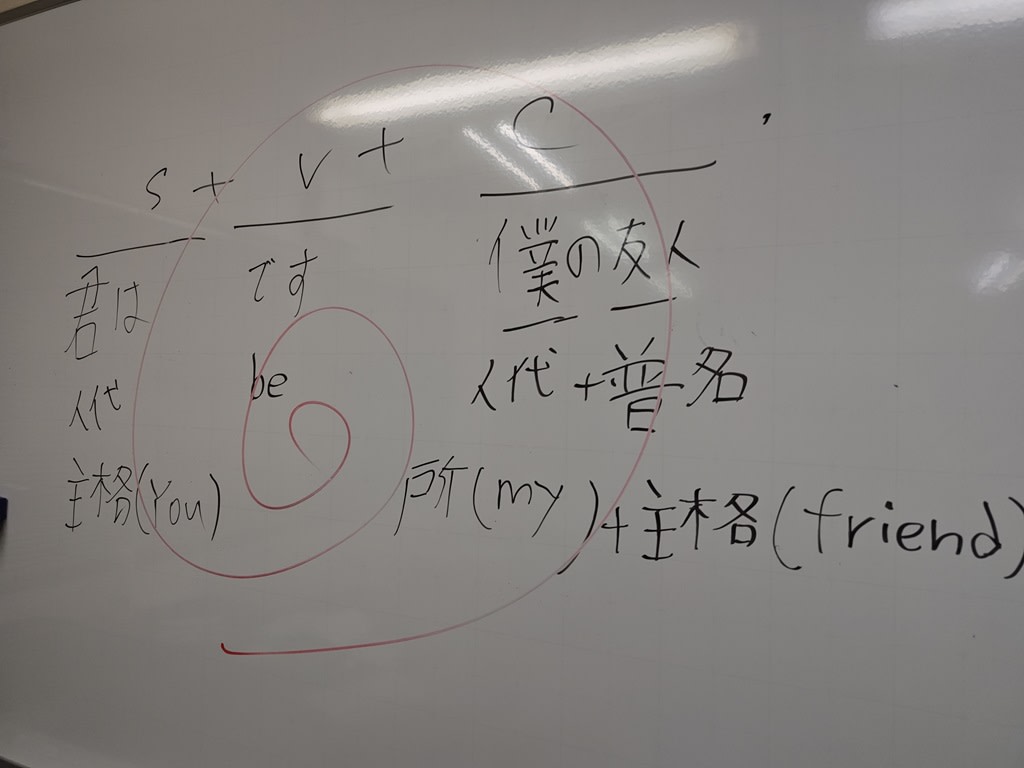 S + V + C .
君は です 僕の友人
人代 be 人代+普名
主格(You) 所(my)+主格(friend)